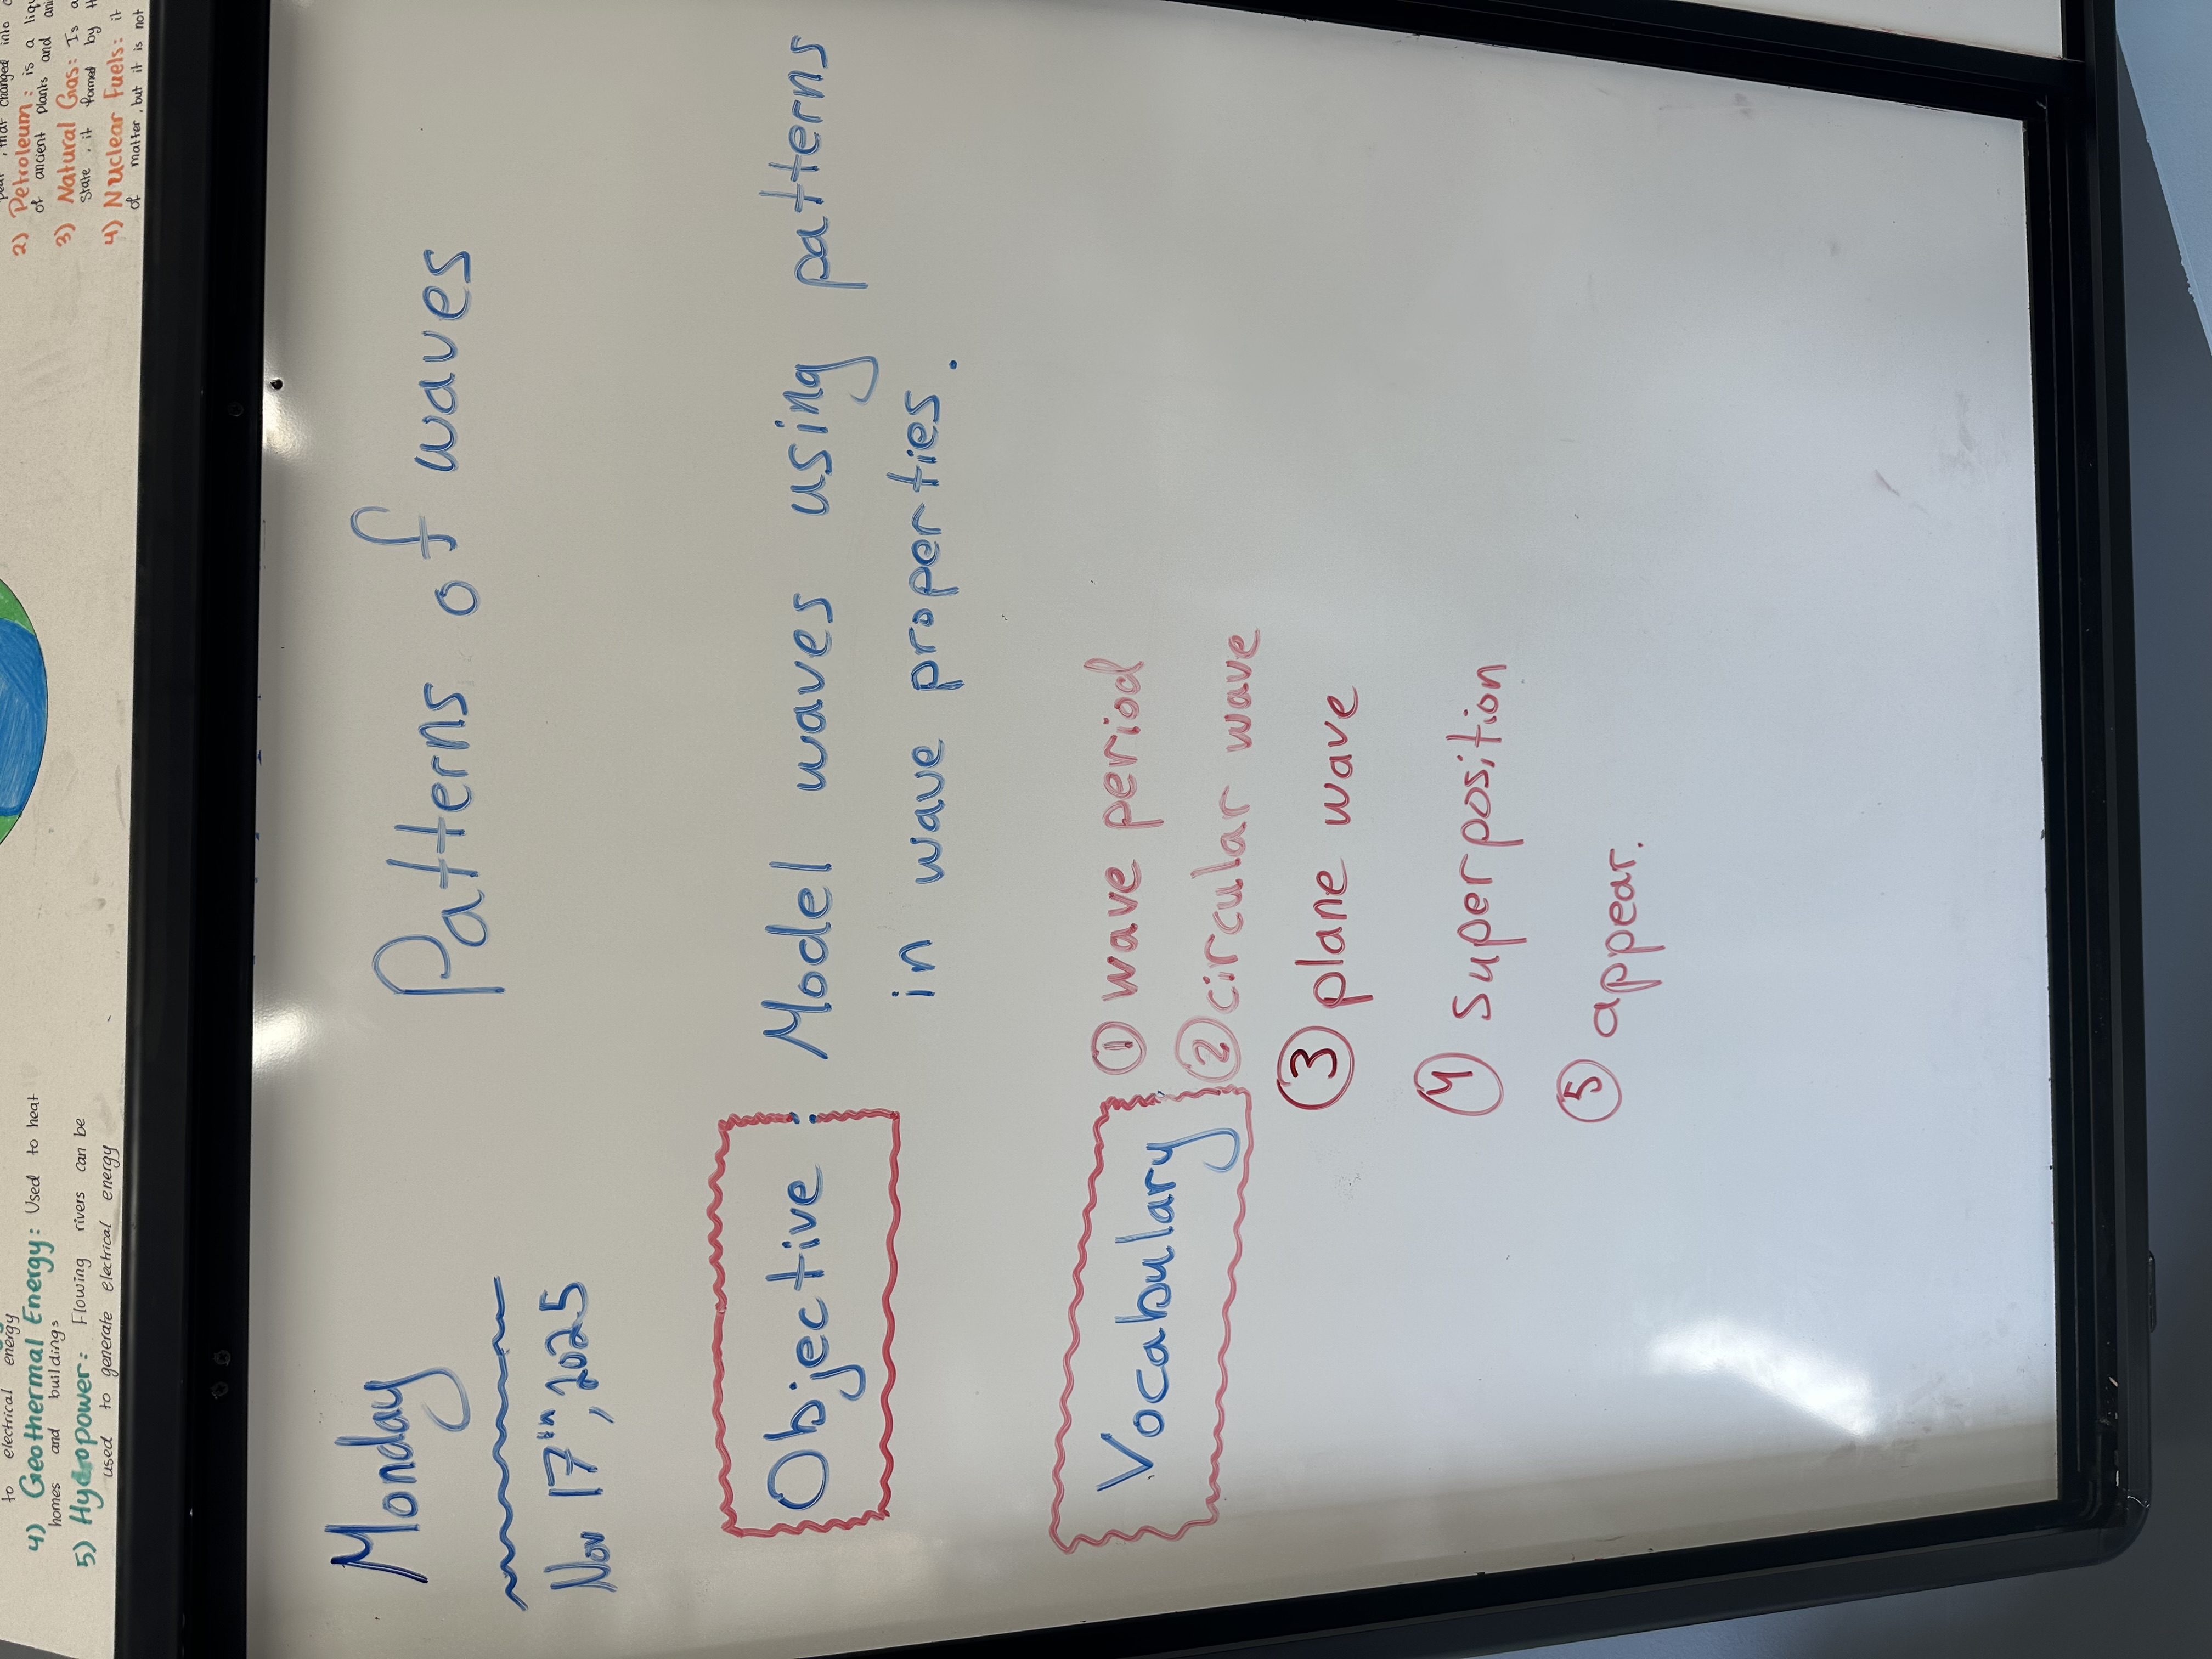 to electrical energy
4) Geothermal Energy: Used to heat
homes and buildings
5) Hydropower: Flowing rivers can be
used to generate electrical energy
that changed into
2) Petroleum: is a
of ancient plants and
3) Natural Gas: Is a
State, it formed by
4) Nuclear Fuels: it
of matter, but it is not
Monday
Nov 17th, 2025
Patterns of waves
Objective: Model waves using patterns
in wave properties.
Vocabulary:
① wave period
② circular wave
③ plane wave
④ superposition
⑤ appear.